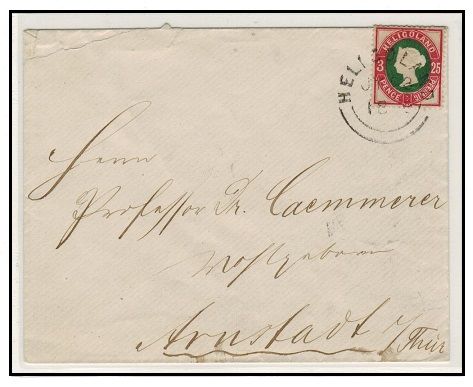 HELIGOLAND
3 25
PENCE PFENNIG
HELIGOLAND
Herrn
Professor Dr. Caemmerer
Wohlgeboren
Arnstadt i/Thür